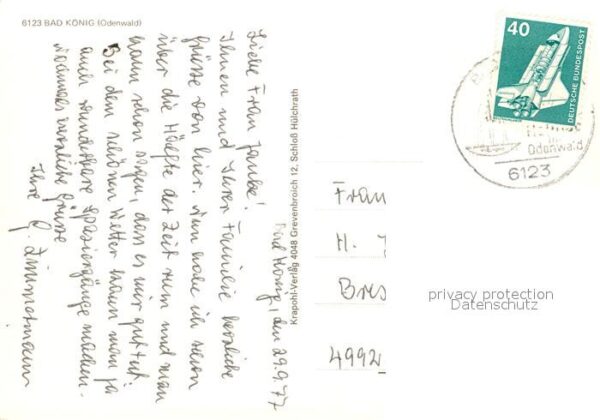 6123 BAD KÖNIG (Odenwald)
Bad König, den 29.9.77
Liebe Frau Janke!
Ihnen und Ihrer Familie herzliche
Grüße von hier. Nun habe ich schon
über die Hälfte der Zeit rum und man
kann schon sagen, dass es mir gut tut.
Bei dem schönen Wetter kann man ja
auch wunderbare Spaziergänge machen.
Nochmals herzliche Grüße
Ihre G. Zimmermann
Krapohl-Verlag 4048 Grevenbroich 12, Schloß Hülchrath
40
DEUTSCHE BUNDESPOST
Odenwald
6123
Frau
H.
Bres
4992
privacy protection
Datenschutz